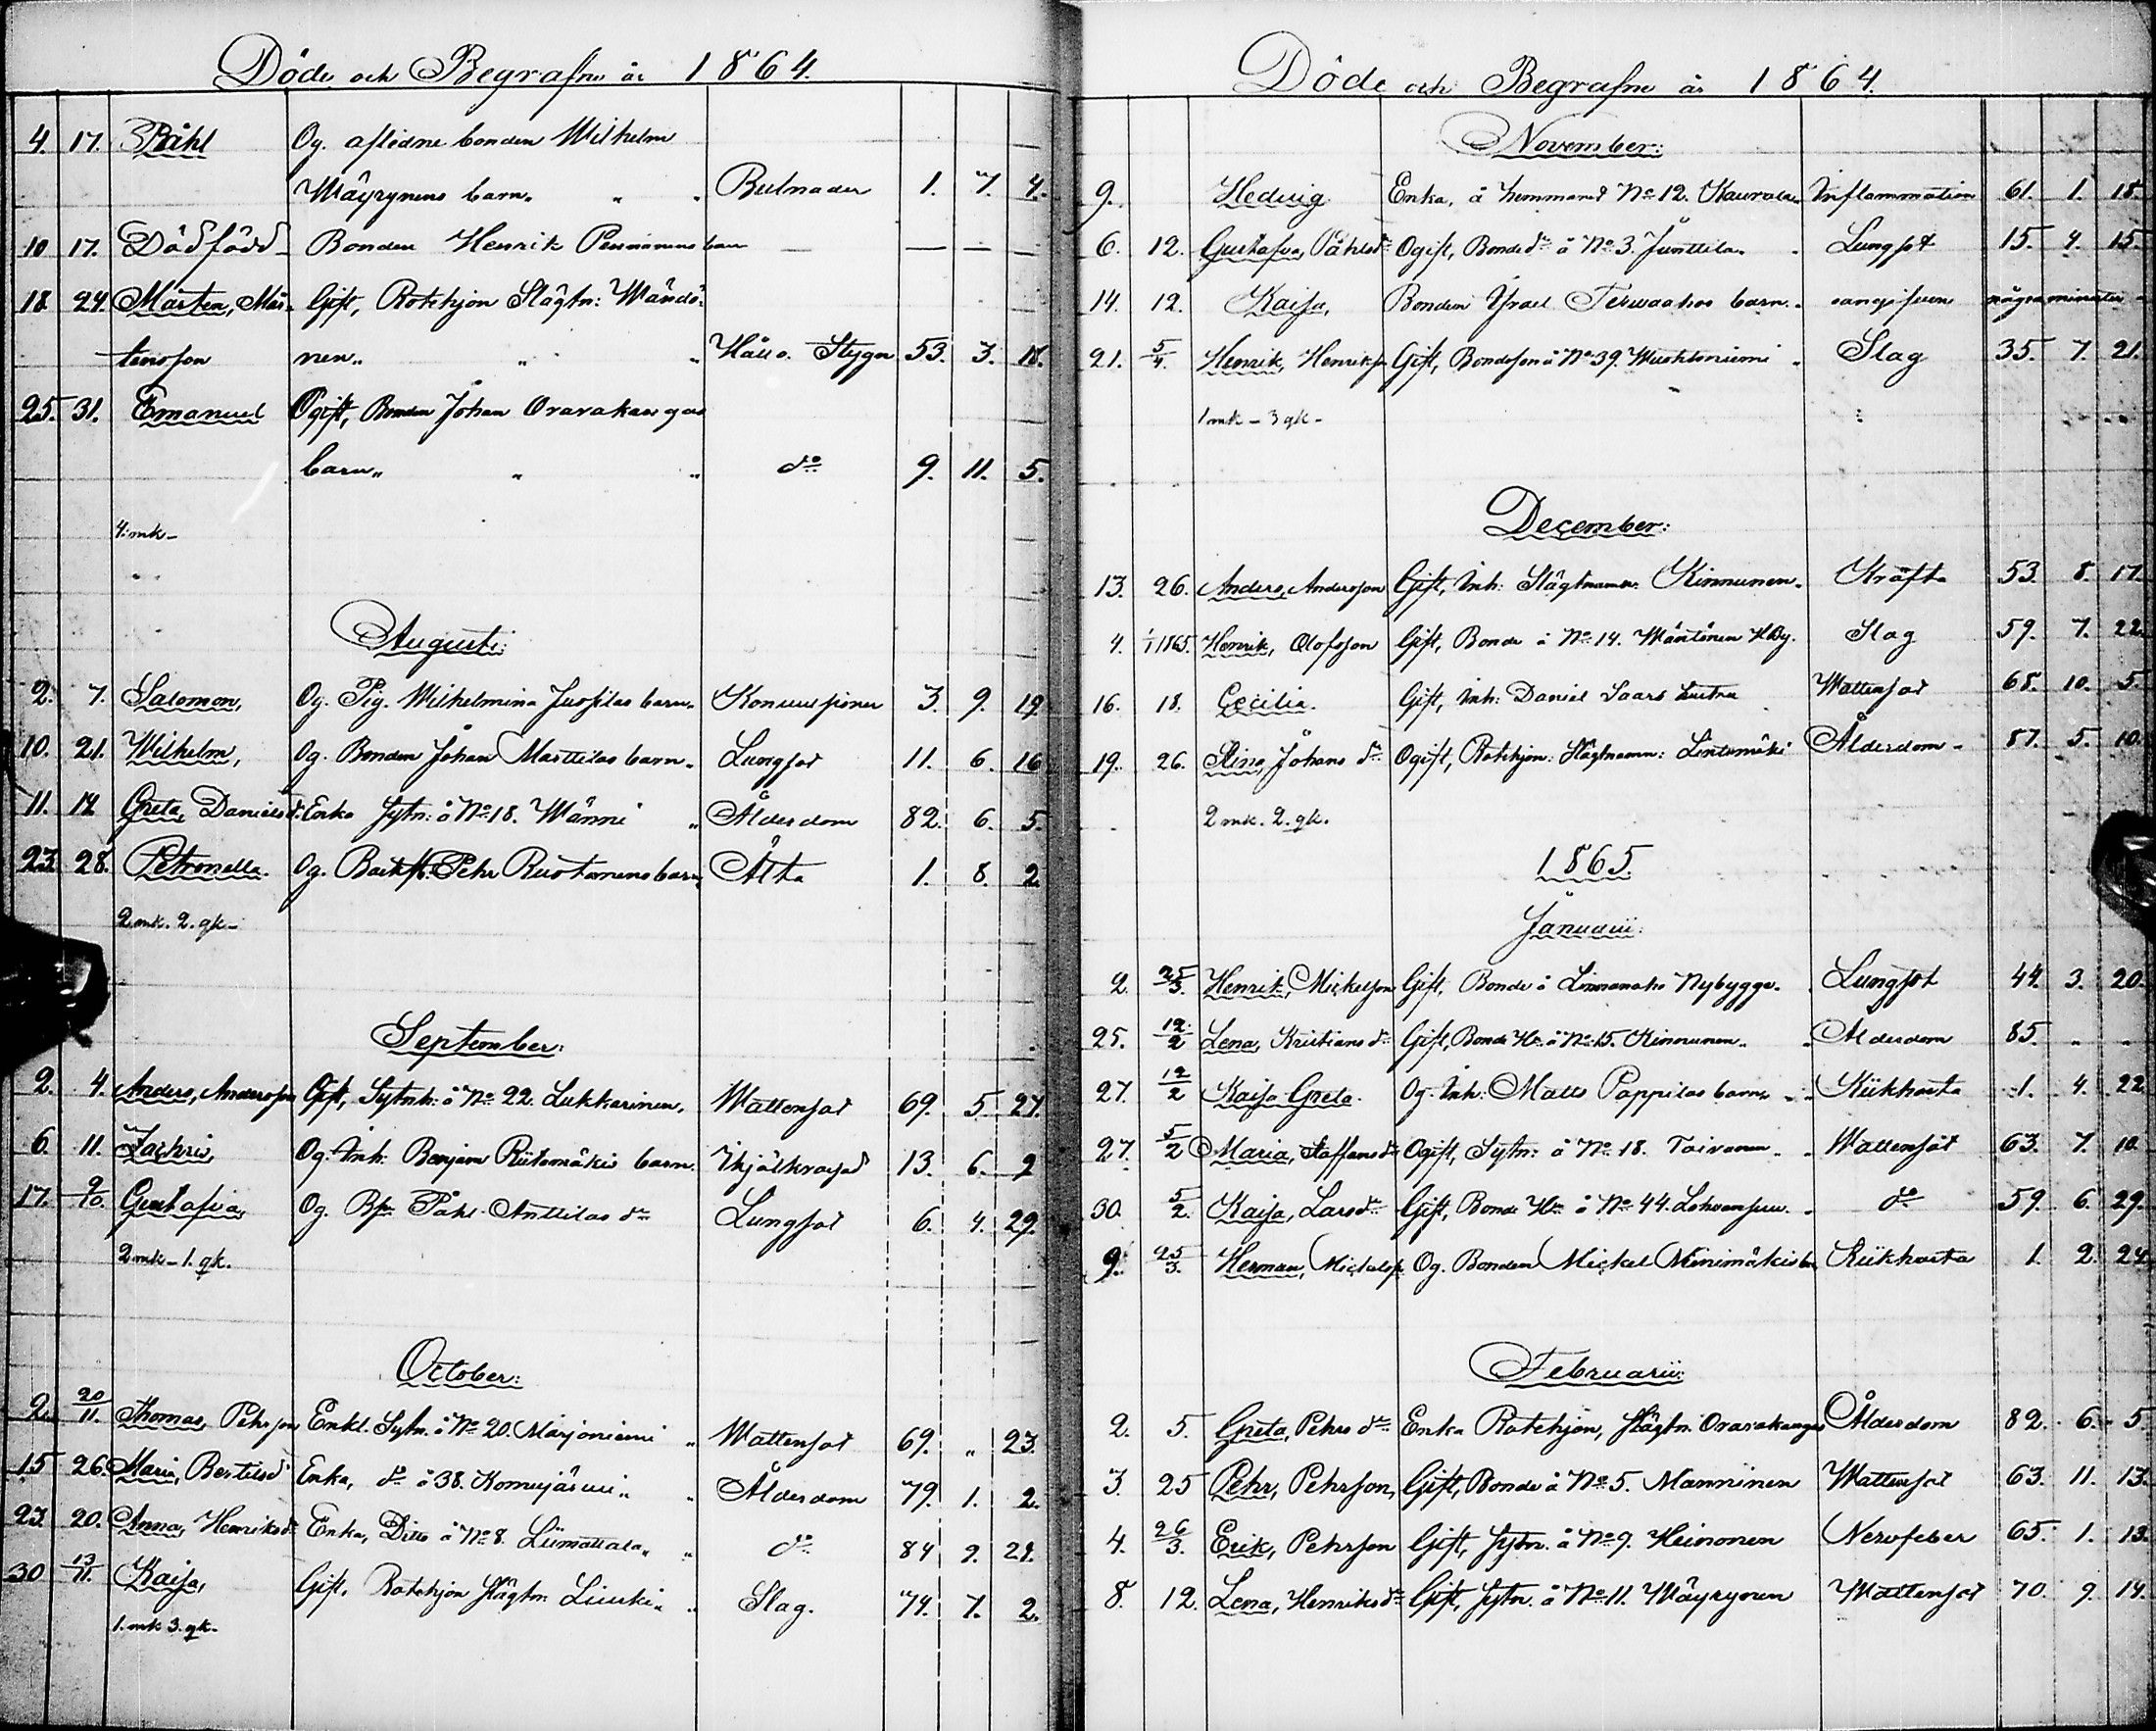 Döde och Begrafne år 1864.
4. 17. Påhl Og. aflidne bonden Wilhelm
Mäyrynens barn. " " Bulnader 1. 7. 4.
10 17. Dödfödd Bonden Henrik Penninens barn — — —
18 24. Mårten, Mår- Gift, Rotehjon Slägtn: Mändö-
tensson nen " " " Håll o. Stygn 53. 3. 18.
25. 31. Emanuel Ogift, Bonden Johan Oravakangas
barn " " " do 9. 11. 5.
4. mk -
Augusti:
2. 7. Salomon, Og. Pig. Wilhelmina Jussilas barn. 3. 9. 19
10. 21. Wilhelm, Og. Bonden Johan Marttilas barn. Lungsot 11. 6. 16
11. 14 Greta, Danielsd. Enka Sytn: å No 18. Männi " Ålderdom 82. 6. 5.
23. 28. Petronella. Og. Pehr Ruotanens barn Älta 1. 8. 2.
2 mk. 2. qk -
September:
2. 4. Anders, Andersson Gift, Sytnh: å No 22. Lukkarinen. Wattensot 69. 5 27.
6. 11. Zachris, Og. Inh. Benjam Riitamäkis barn. 13. 6. 2
17. 9/10. Gustafva, Og. Bp. Påhl Anttilas dr Lungsot 6. 4. 29.
2 mk - 1. qk.
October:
2. 20/11. Thomas, Pehrsson Enkl. Sytn. å No 20. Marjoniemi " Wattensot 69. " 23.
15 26. Maria, Bertilsd Enka, do å 38. Komujärvi " " Ålderdom 79. 1. 2.
23. 20. Anna, Henriksdr Enka, Ditto å No 8. Liimattala " " do 84 9. 29.
30 13/11. Kaisa, Gift, Rotehjon Slägtn: Liuski " " Slag. 74. 7. 2.
1. mk 3. qk -
Döde och Begrafne år 1864.
November:
9. Hedvig Enka, å hemmanet No 12. Kaurala Inflammation 61. 1. 18.
6. 12. Gustafva, Påhlsdr Ogift, Bondedr å No 3. Junttila. Lungsot 15. 4. 15.
14. 12. Kaisa, Bonden Israel Terwaahos barn. oangifven några minuter
21. 5/4. Henrik, Henrikss. Gift, Bondeson å No 39. Wuohtoniemi Slag 35. 7. 21.
1 mk - 3 qk -
December:
13. 26. Anders, Andersson Gift, Inh: Slägtnamn: Kinnunen. Kräfta 53. 8. 17.
4. 1/1 1865. Henrik, Olofsson Gift, Bonde å No 14. Mäntönen HBy. Slag 59. 7. 22.
16. 18. Cecilia. Gift, Inh: Daniel Saars hustru Wattensot 68. 10. 5.
19. 26. Stina, Johans dr Ogift, Rotehjon: Slägtnamn: Lintumäki Ålderdom - 87. 5. 10.
2 mk. 2. qk.
1865.
Januarii:
2. 25/3. Henrik, Mickelsson Gift, Bonde å Linnunaho Nybygge. Lungsot 44. 3. 20.
25. 12/2 Lena, Kristians dr Gift, Bonde Hu å No 15. Kinnunen. Ålderdom 85. " "
27. 12/2 Kaisa Greta. Og. Inh: Matts Pappilas barn. Kikhosta 1. 4. 22.
27. 5/2 Maria, Staffans dr Ogift, Sytn: å No 18. Toivanen. Wattensot 63. 7. 10.
30. 5/2. Kaisa, Lars dr Gift, Bonde Hu å No 44. do 59. 6. 29.
9. 25/3. Herman, Mickelss. Og. Bonden Mickel Minimäkis bn Kikhosta 1. 2. 24.
Februarii:
2. 5. Greta, Pehrs dr Enka Rotehjon, Slägtn: Oravakangas Ålderdom 82. 6. 5
3. 25 Pehr, Pehrsson, Gift, Bonde å No 5. Manninen Wattensot 63. 11. 13.
4. 26/3. Erik, Pehrsson Gift, Sytn. å No 9. Heinonen Nervfeber 65. 1. 13.
8. 12. Lena, Henriksdr Gift, Sytn. å No 11. Mäyrynen Wattensot 70. 9. 14.